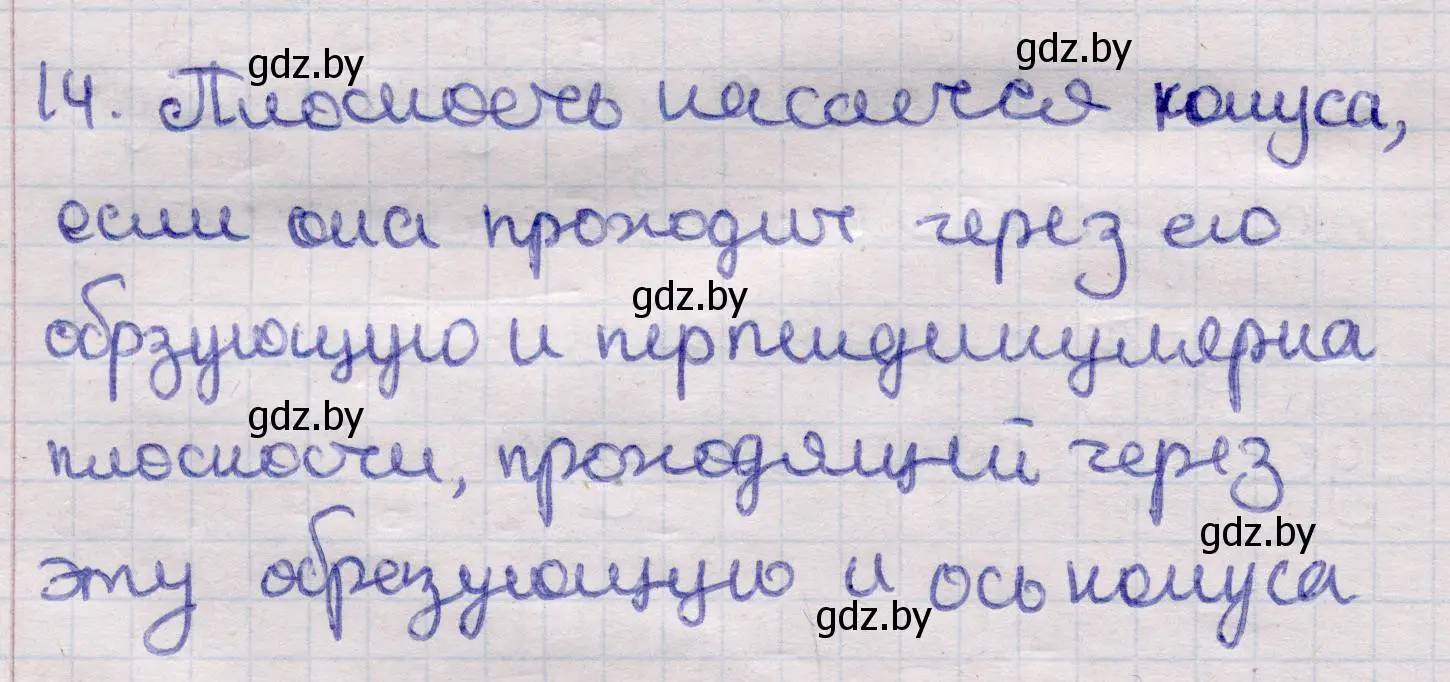 gdz.by
gdz.by
14. Плоскость касается конуса,
если она проходит через его
gdz.by
обрзующую и перпендикулярна
gdz.by
плоскости, проходящей через
gdz.by
эту образующую и ось конуса
gdz.by